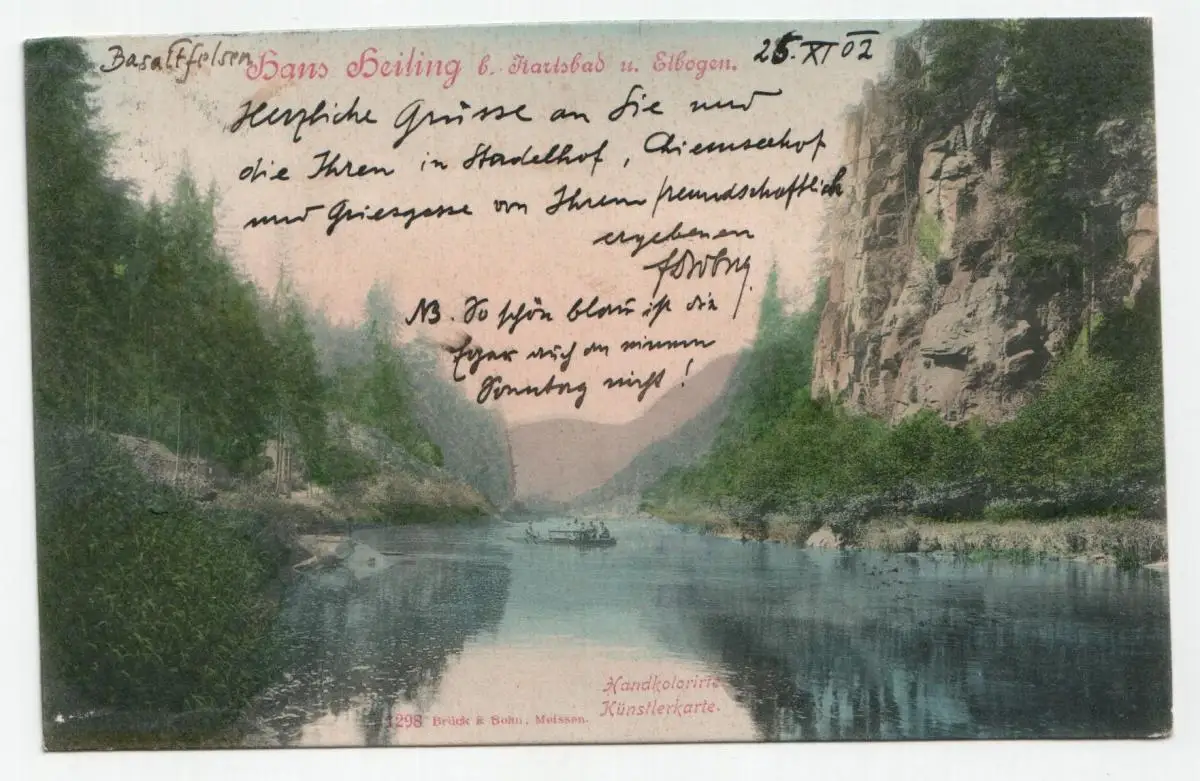 Basaltfelsen Hans Heiling b. Karlsbad u. Elbogen. 25.XI 02
Herzliche Grüsse an Sie und
die Ihren in Stadelhof, Chiemseehof
und Griesgasse von Ihrem freundschaftlich
ergebenen
NB. So schön blau ist die
Eger auch an einem
Sonntag nicht!
Handkolorirte
Künstlerkarte.
1298 Brück & Sohn, Meissen.